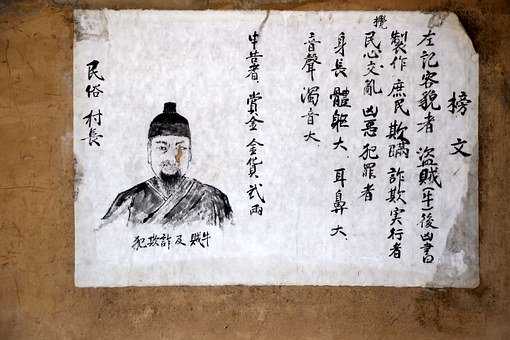 榜文
左記容貌者 盜賊(牛)後凶書
製作 庶民 欺瞞 詐欺 実行者
攪
民心交亂 凶惡 犯罪者
身長 體軀大、耳鼻大、
音聲 濁音大、
申告者 賞金 金貨 弐兩
牛賊及詐欺犯
民俗村長